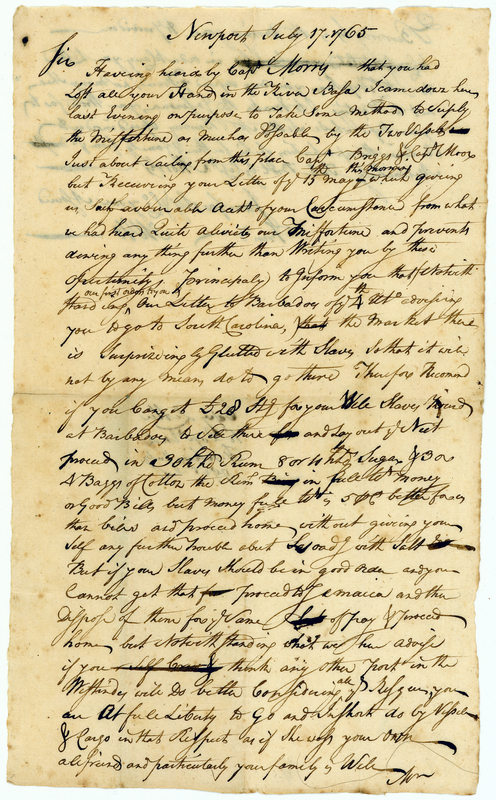 Newport July 17. 1765
Sir
Haveing heard by Capt Morris that you had
Lost all your Hands in the River Basa I came down here
last Evening on purpose to Take Some Method to Suply
the Missfortune as much as Possable by the Two Vessels
Just about Sailing from this place Capt Briggs & Capt Moor
but Receiveing your Letter of ye 15th May this morning which giveing
us Such a favourable Acct of your Cercumstance from what
we had heard Quite Aleviates our Missfortune and prevents
doeing any thing further than Writeing you by these
Opertunity Principaly to Inform you that Notwith
our first orders to you &
Standing Our Letter to Barbados of ye 4th Ulto adviseing
you to go to South Carolina, the Market there
is Surprizeingly Glutted with Slaves So that it will
not by any means do to go there Therefore Recomend
if you Can get £28 Stg for your Well Slaves
at Barbados to Sell there and Lay out ye Neet
proceed in 30 hhd Rum 8 or 10 Sugar & 3 or
4 Baggs of Cotton the Remr in full Wt money
or Good Bills, but money full Wt is 5 PC better for us
than bills and proceed home without giveing your
Self any further Trouble abut with Salt
But if your Slaves Should be in good order and you
Cannot get that proceed to Jamaica and then
Disspose of them for ye Same of pay & proceed
home but Notwithstanding what we here advise
if you think any other port in the
Westindies will do better Considering all ye Risques, you
are At full Liberty to Go and in Short do by Vessel
& Cargo in that Respect as if She was your Own
all friends and particularly your family is Well